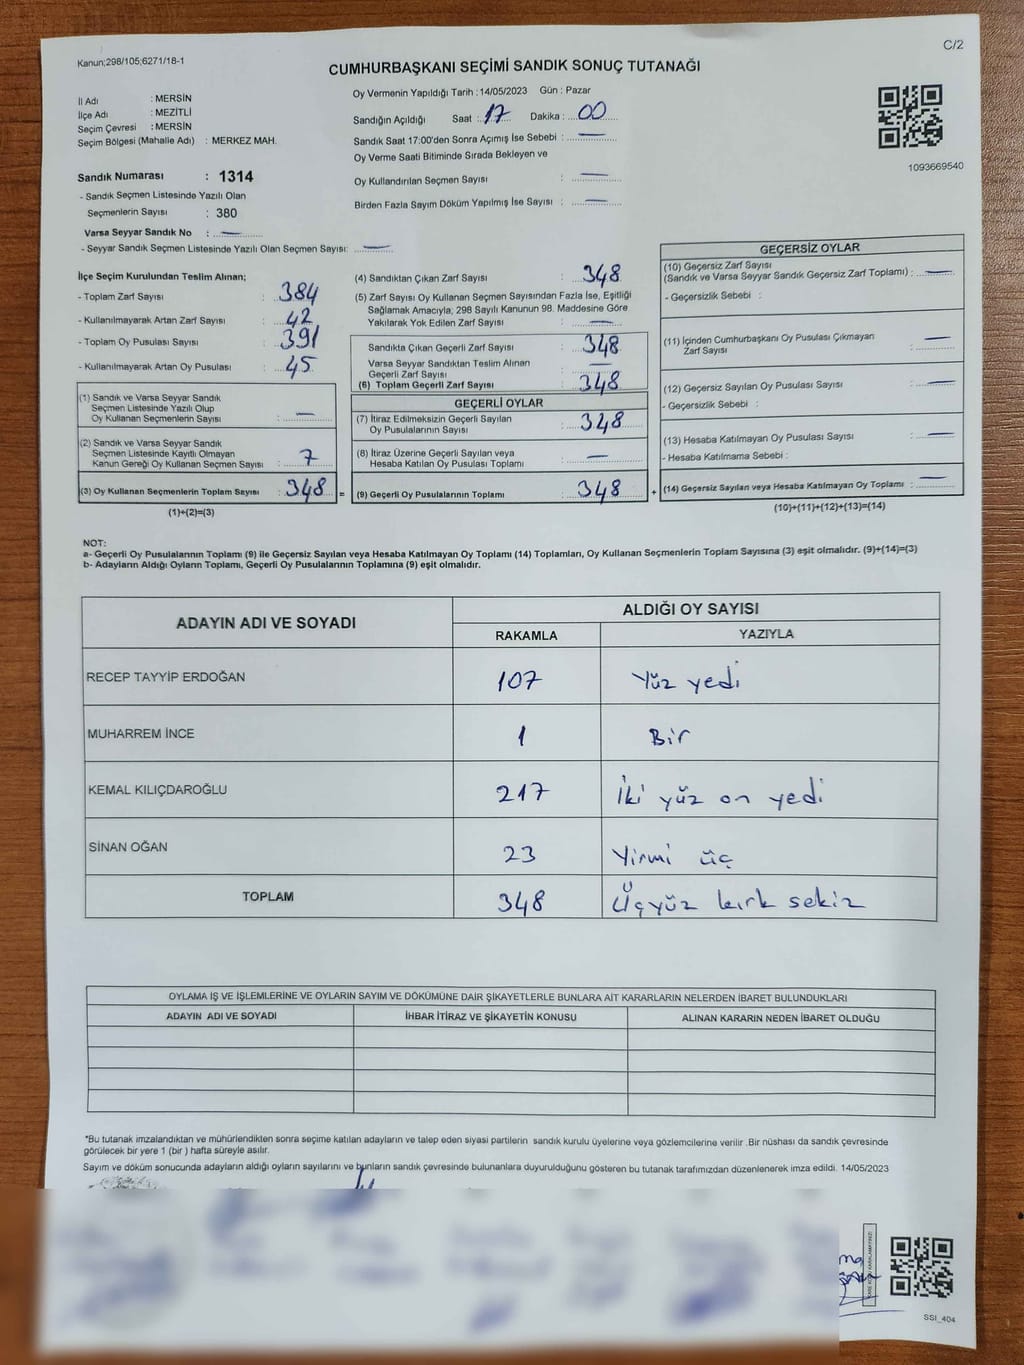 C/2
Kanun;298/105;6271/18-1
CUMHURBAŞKANI SEÇİMİ SANDIK SONUÇ TUTANAĞI
İl Adı : MERSİN
İlçe Adı : MEZİTLİ
Seçim Çevresi : MERSİN
Seçim Bölgesi (Mahalle Adı) : MERKEZ MAH.
Sandık Numarası : 1314
- Sandık Seçmen Listesinde Yazılı Olan
Seçmenlerin Sayısı : 380
Varsa Seyyar Sandık No : —
- Seyyar Sandık Seçmen Listesinde Yazılı Olan Seçmen Sayısı: —
Oy Vermenin Yapıldığı Tarih :14/05/2023 Gün : Pazar
Sandığın Açıldığı Saat : 17 Dakika : 00
Sandık Saat 17:00'den Sonra Açımış İse Sebebi : —
Oy Verme Saati Bitiminde Sırada Bekleyen ve
Oy Kullandırılan Seçmen Sayısı : —
Birden Fazla Sayım Döküm Yapılmış İse Sayısı : —
1093669540
İlçe Seçim Kurulundan Teslim Alınan;
- Toplam Zarf Sayısı : 384
- Kullanılmayarak Artan Zarf Sayısı : 42
- Toplam Oy Pusulası Sayısı : 391
- Kullanılmayarak Artan Oy Pusulası : 45
(1) Sandık ve Varsa Seyyar Sandık
Seçmen Listesinde Yazılı Olup
Oy Kullanan Seçmenlerin Sayısı : —
(2) Sandık ve Varsa Seyyar Sandık
Seçmen Listesinde Kayıtlı Olmayan
Kanun Gereği Oy Kullanan Seçmen Sayısı : 7
(3) Oy Kullanan Seçmenlerin Toplam Sayısı : 348 =
(1)+(2)=(3)
(4) Sandıktan Çıkan Zarf Sayısı : 348
(5) Zarf Sayısı Oy Kullanan Seçmen Sayısından Fazla İse, Eşitliği
Sağlamak Amacıyla, 298 Sayılı Kanunun 98. Maddesine Göre
Yakılarak Yok Edilen Zarf Sayısı : —
Sandıkta Çıkan Geçerli Zarf Sayısı : 348
Varsa Seyyar Sandıktan Teslim Alınan
Geçerli Zarf Sayısı : —
(6) Toplam Geçerli Zarf Sayısı : 348
GEÇERLİ OYLAR
(7) İtiraz Edilmeksizin Geçerli Sayılan
Oy Pusulalarının Sayısı : 348
(8) İtiraz Üzerine Geçerli Sayılan veya
Hesaba Katılan Oy Pusulası Toplamı : —
(9) Geçerli Oy Pusulalarının Toplamı : 348 +
GEÇERSİZ OYLAR
(10) Geçersiz Zarf Sayısı
(Sandık ve Varsa Seyyar Sandık Geçersiz Zarf Toplamı) : —
- Geçersizlik Sebebi :
(11) İçinden Cumhurbaşkanı Oy Pusulası Çıkmayan
Zarf Sayısı : —
(12) Geçersiz Sayılan Oy Pusulası Sayısı : —
- Geçersizlik Sebebi :
(13) Hesaba Katılmayan Oy Pusulası Sayısı : —
- Hesaba Katılmama Sebebi :
(14) Geçersiz Sayılan veya Hesaba Katılmayan Oy Toplamı : —
(10)+(11)+(12)+(13)=(14)
NOT:
a- Geçerli Oy Pusulalarının Toplamı (9) ile Geçersiz Sayılan veya Hesaba Katılmayan Oy Toplamı (14) Toplamları, Oy Kullanan Seçmenlerin Toplam Sayısına (3) eşit olmalıdır. (9)+(14)=(3)
b- Adayların Aldığı Oyların Toplamı, Geçerli Oy Pusulalarının Toplamına (9) eşit olmalıdır.
ADAYIN ADI VE SOYADI ALDIĞI OY SAYISI
RAKAMLA YAZIYLA
RECEP TAYYİP ERDOĞAN 107 Yüz yedi
MUHARREM İNCE 1 Bir
KEMAL KILIÇDAROĞLU 217 İki yüz on yedi
SİNAN OĞAN 23 Yirmi üç
TOPLAM 348 Üçyüz kırk sekiz
OYLAMA İŞ VE İŞLEMLERİNE VE OYLARIN SAYIM VE DÖKÜMÜNE DAİR ŞİKAYETLERLE BUNLARA AİT KARARLARIN NELERDEN İBARET BULUNDUKLARI
ADAYIN ADI VE SOYADI İHBAR İTİRAZ VE ŞİKAYETİN KONUSU ALINAN KARARIN NEDEN İBARET OLDUĞU
*Bu tutanak imzalandıktan ve mühürlendikten sonra seçime katılan adayların ve talep eden siyasi partilerin sandık kurulu üyelerine veya gözlemcilerine verilir .Bir nüshası da sandık çevresinde
görülecek bir yere 1 (bir ) hafta süreyle asılır.
Sayım ve döküm sonucunda adayların aldığı oyların sayılarını ve bunların sandık çevresinde bulunanlara duyurulduğunu gösteren bu tutanak tarafımızdan düzenlenerek imza edildi. 14/05/2023
SSI_404